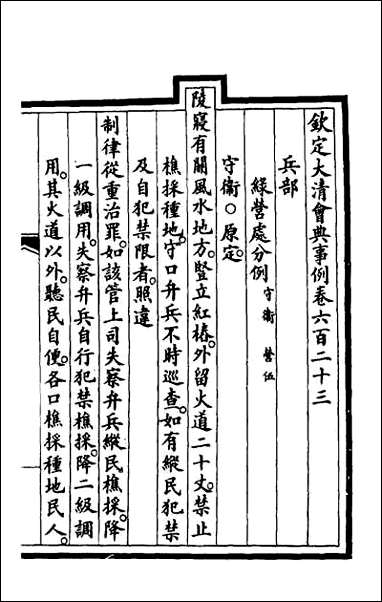 欽定大清會典事例卷六百二十三
兵部
綠營處分例守衞 營伍
守衞○原定。
陵寢有關風水地方。豎立紅樁。外留火道二十丈。禁止
樵採種地。守口弁兵不時巡查。如有縱民犯禁
及自犯禁限者。照違
制律從重治罪。如該管上司失察弁兵縱民樵採。降
一級調用。失察弁兵自行犯禁樵採。降二級調
用。其火道以外。聽民自便。各口樵採種地民人。